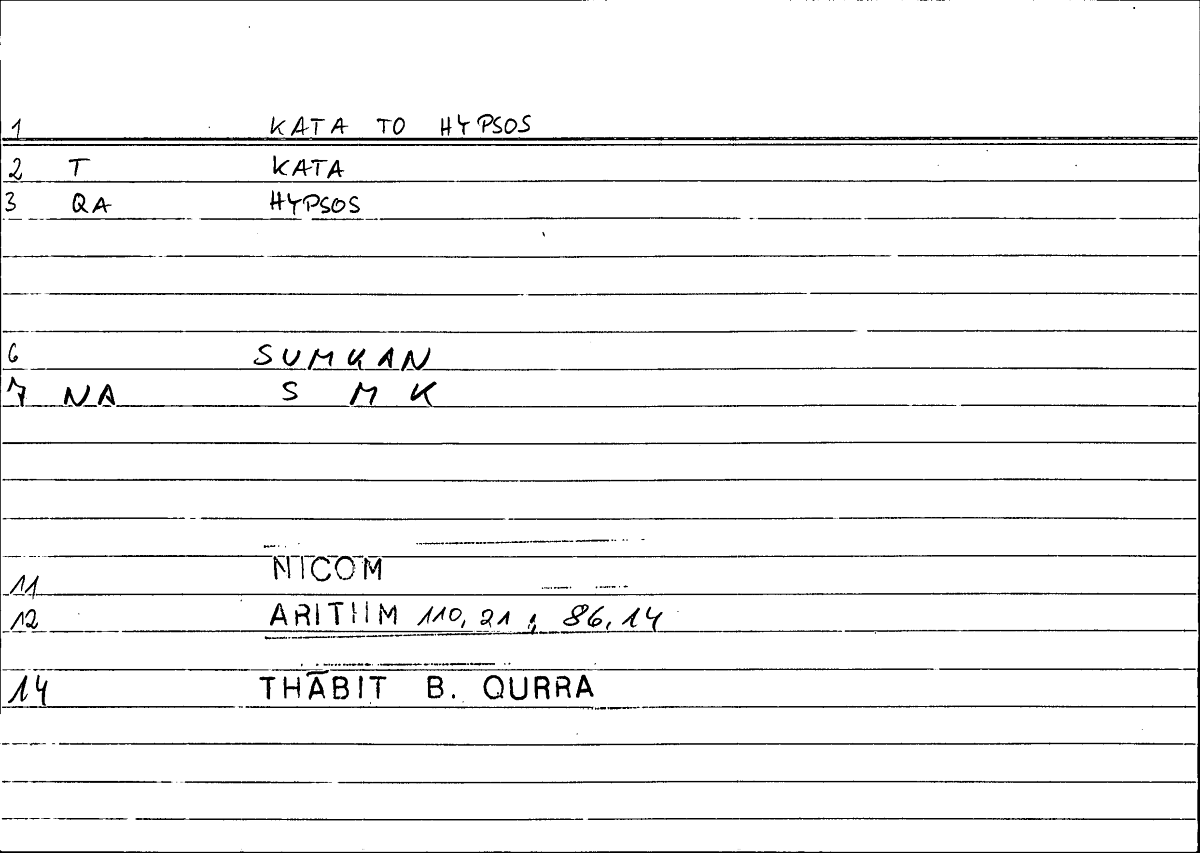 1 KATA TO HYPSOS
2 T KATA
3 QA HYPSOS
6 SUMKAN
7 NA S M K
11 NICOM
12 ARITHM 110, 21 ; 86, 14
14 THĀBIT B. QURRA